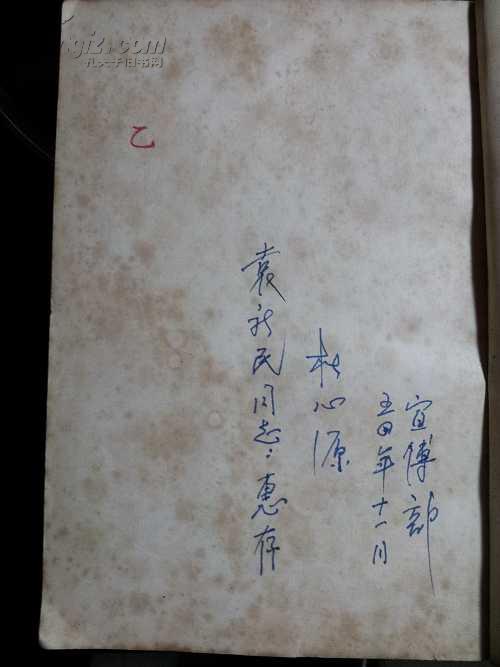 gizi.com
孔夫子旧书网
乙
袁新民同志：惠存
杜心源
五四年十一月
宣传部